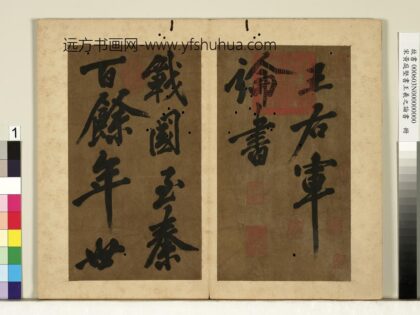 远方书画网 www.yfshuhua.com
王右軍
論書
戰國至秦
百餘年世
1
故書
宋黃庭堅書王羲之論書 冊